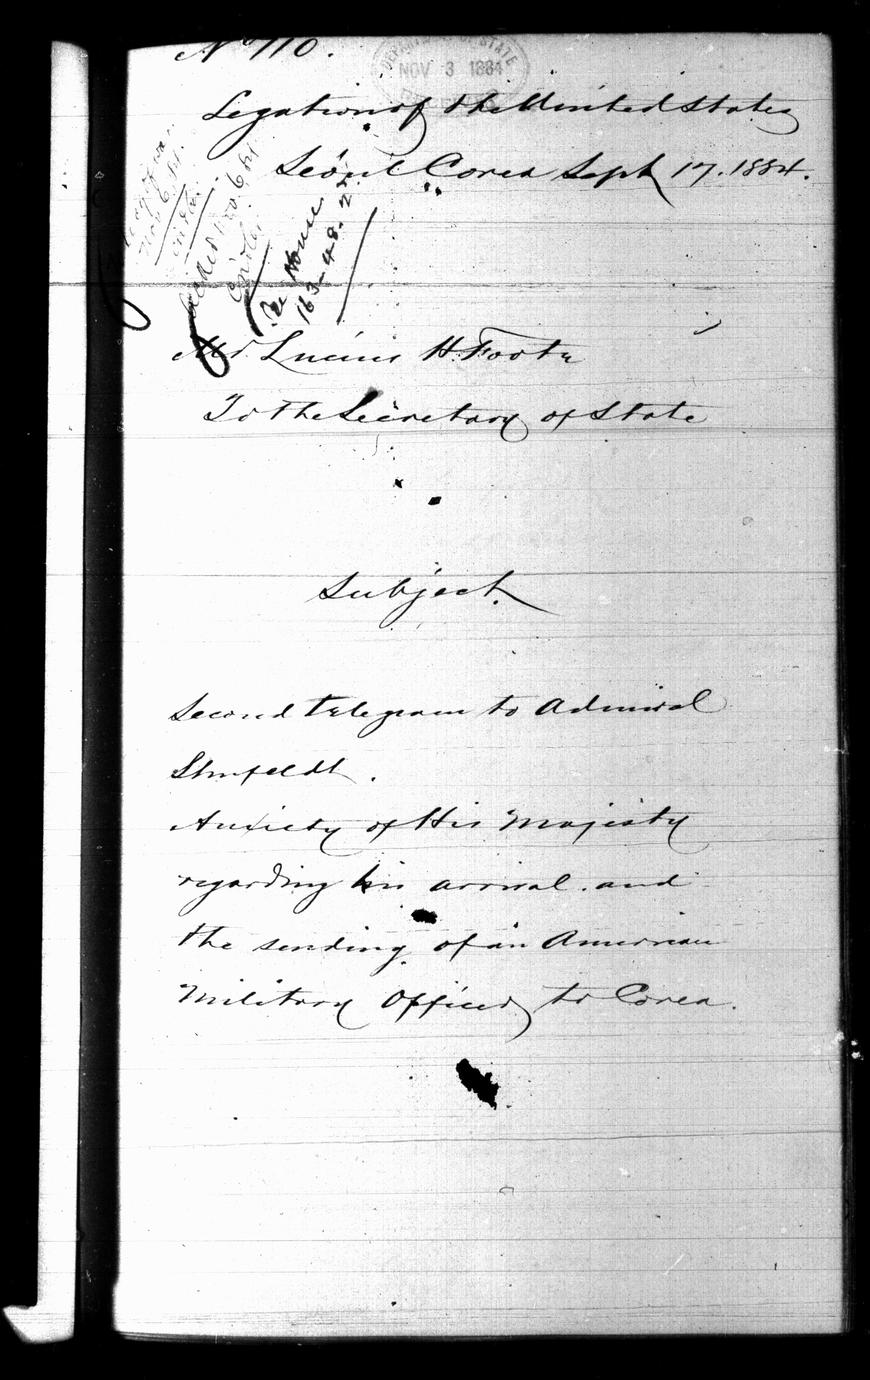 No 110.
DEPARTMENT OF STATE
NOV 3 1884
Legation of the United States
Seoul Corea Sept 17. 1884.
Nov 6, 84.
Nov 6, 84
163-48-2
Mr Lucius H. Foote
To the Secretary of State
Subject.
Second telegram to Admiral
Shufeldt.
Anxiety of His Majesty
regarding his arrival. and
the sending of an American
Military Officer, to Corea.